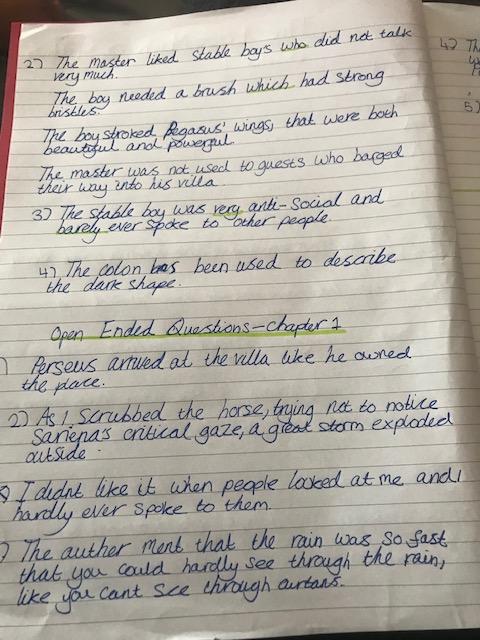 2) The master liked stable boys who did not talk
very much.
The boy needed a brush which had strong
bristles.
The boy stroked Pegasus' wings, that were both
beautyful and powerful.
The master was not used to guests who barged
their way into his villa.
3) The stable boy was very anti-social and
barely ever spoke to other people
4) The colon has been used to describe
the dark shape.
Open Ended Questions - chapter 1
) Perseus arrived at the villa like he owned
the place.
2) As I scrubbed the horse, trying not to notice
Sariena's critical gaze, a great storm exploded
outside.
I didnt like it when people looked at me and I
hardly ever spoke to them.
) The auther ment that the rain was so fast
that you could hardly see through the rain,
like you cant see through curtans.
42 Th
5)